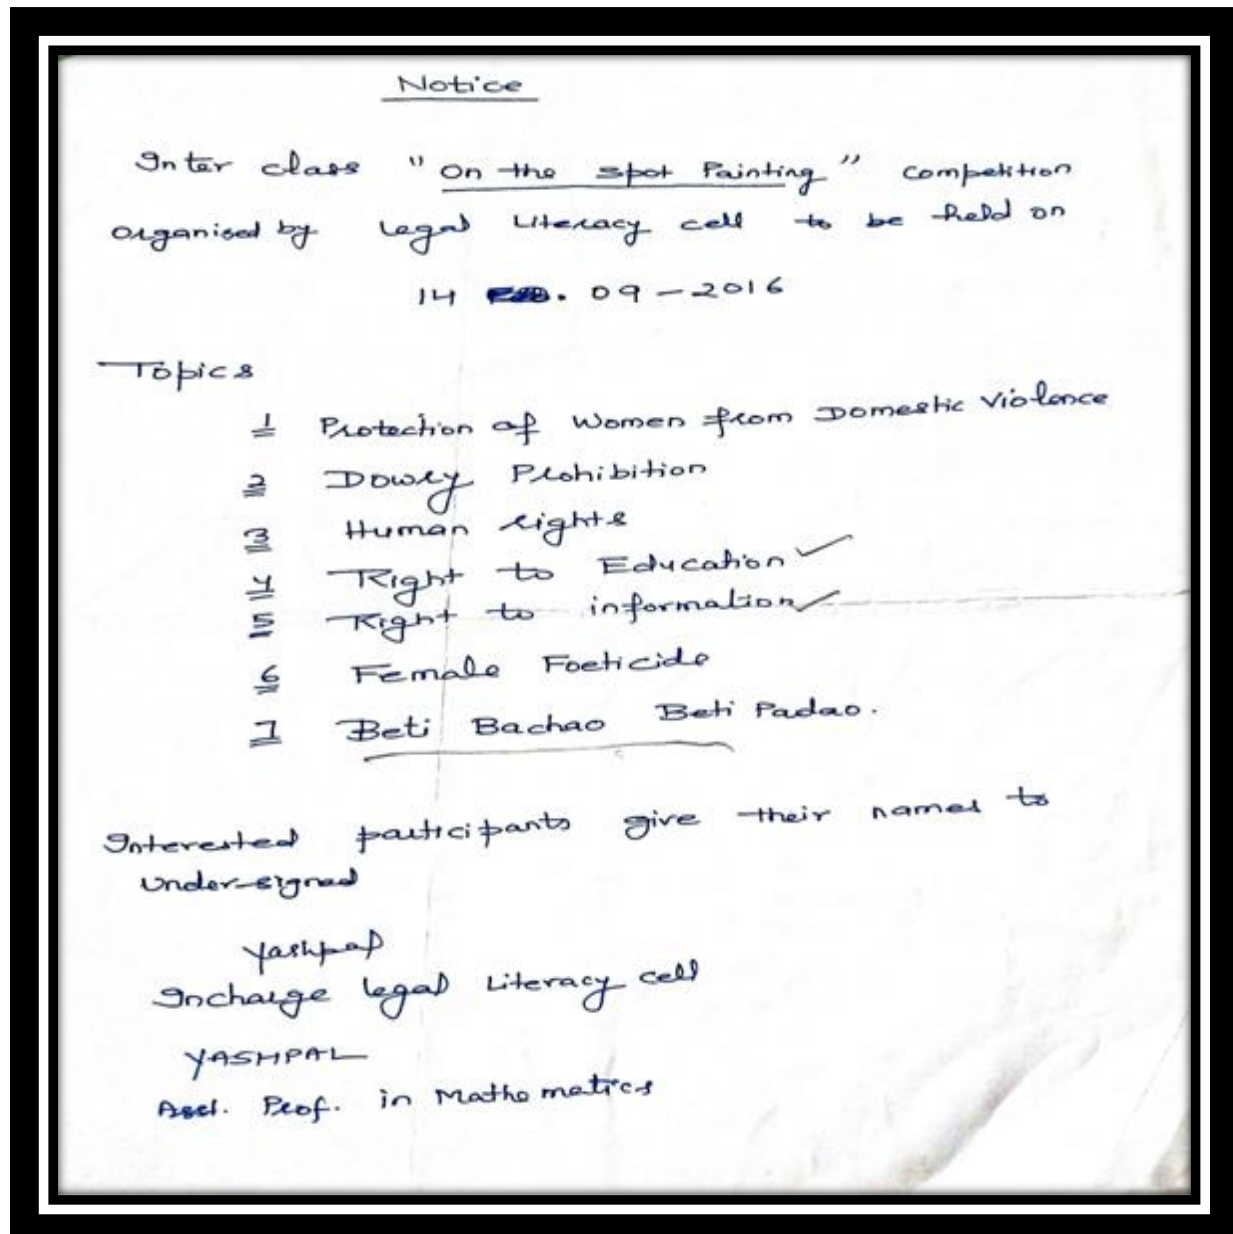 Notice
Inter class "On the spot Painting" competition
organised by Legal Literacy cell to be held on
14 . 09 - 2016
Topics
1 Protection of Women from Domestic Violence
2 Dowry Prohibition
3 Human rights
4 Right to Education ✓
5 Right to information ✓
6 Female Foeticide
7 Beti Bachao Beti Padao.
Interested participants give their names to
under-signed
Yashpal
Incharge legal Literacy cell
YASHPAL
Asst. Prof. in Mathematics